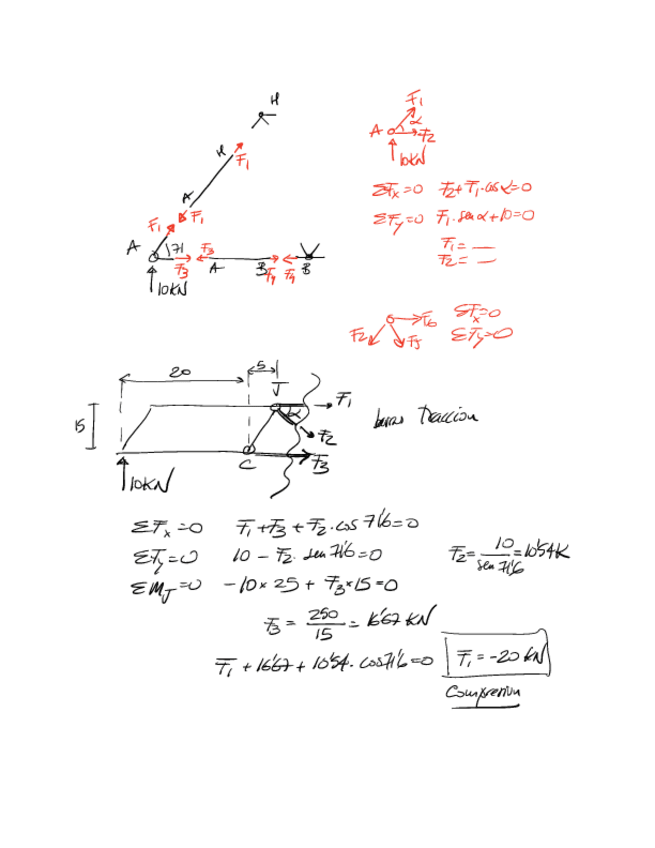 H
H
F₁
A
F₁
F₁
A
71
F₃
F₃
A
B
F₄
F₄
B
10KN
F₁
A
α
F₂
10KN
ΣFx=0 F₂+F₁·cos α=0
ΣFy=0 F₁·sen α+10=0
F₁= __
F₂= __
F₆
F₂
F₅
ΣFx=0
ΣFy=0
20
5
J
F₁
15
α
F₂
C
F₃
10KN
barras Traccion
ΣFx=0 F₁+F₃+F₂·cos 71'6=0
ΣFy=0 10-F₂·sen 71'6=0
F₂= 10/sen 71'6 =10'54K
ΣMJ=0 -10×25+F₃×15=0
F₃= 250/15 = 16'67 KN
F₁+16'67+10'54·cos 71'6=0
F₁=-20 KN
Compresion